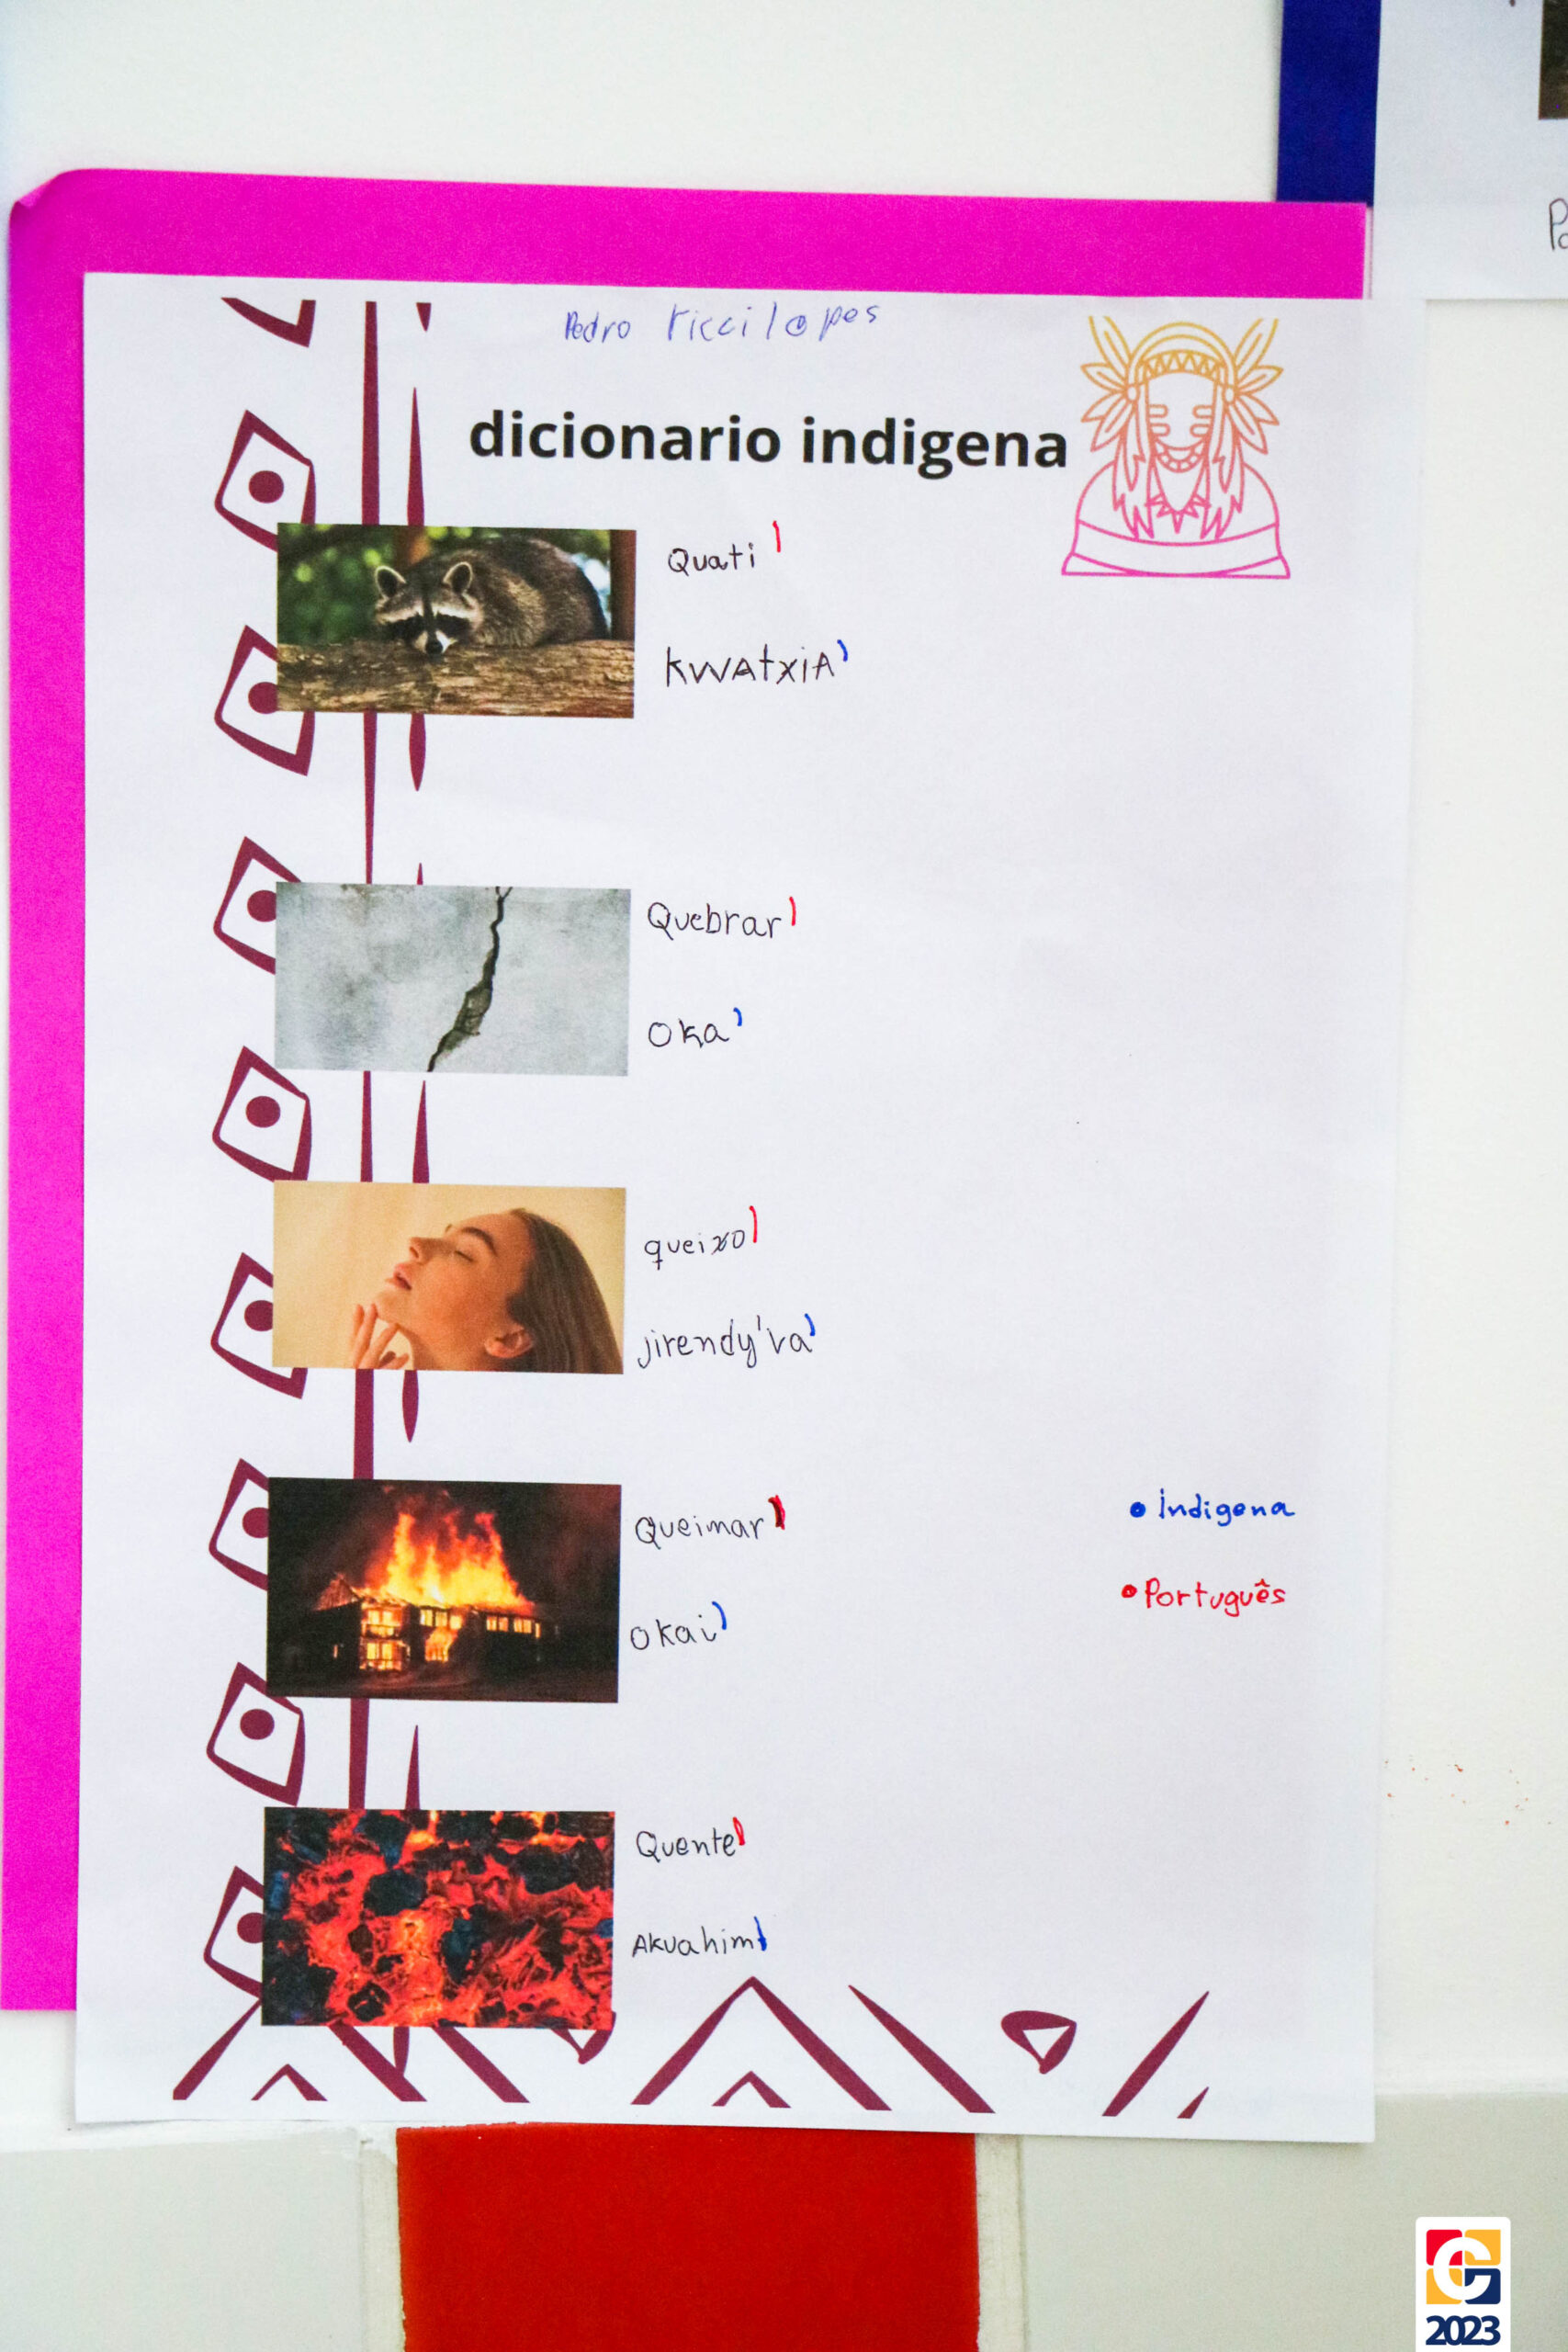 Pedro ricci lopes
dicionario indigena
Quati
KWATXIA
Quebrar
Oka
queixo
jirendy'va
Queimar
Okai
Indigena
Português
Quente
AKuahim
2023